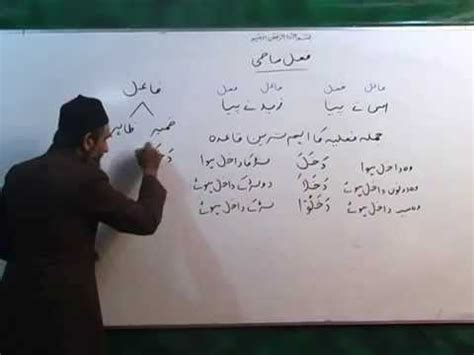 بسم اللہ الرحمن الرحیم
فعل ماضی
فاعل فعل فاعل فعل
اس نے پیا زید نے پیا
فاعل
ضمیر ظاہر
جملہ فعلیہ کا اہم ترین قاعدہ
وہ داخل ہوا دَخَلَ لڑکا داخل ہوا
وہ دونوں داخل ہوئے دَخَلَا دو لڑکے داخل ہوئے
وہ سب داخل ہوئے دَخَلُوْا لڑکے داخل ہوئے